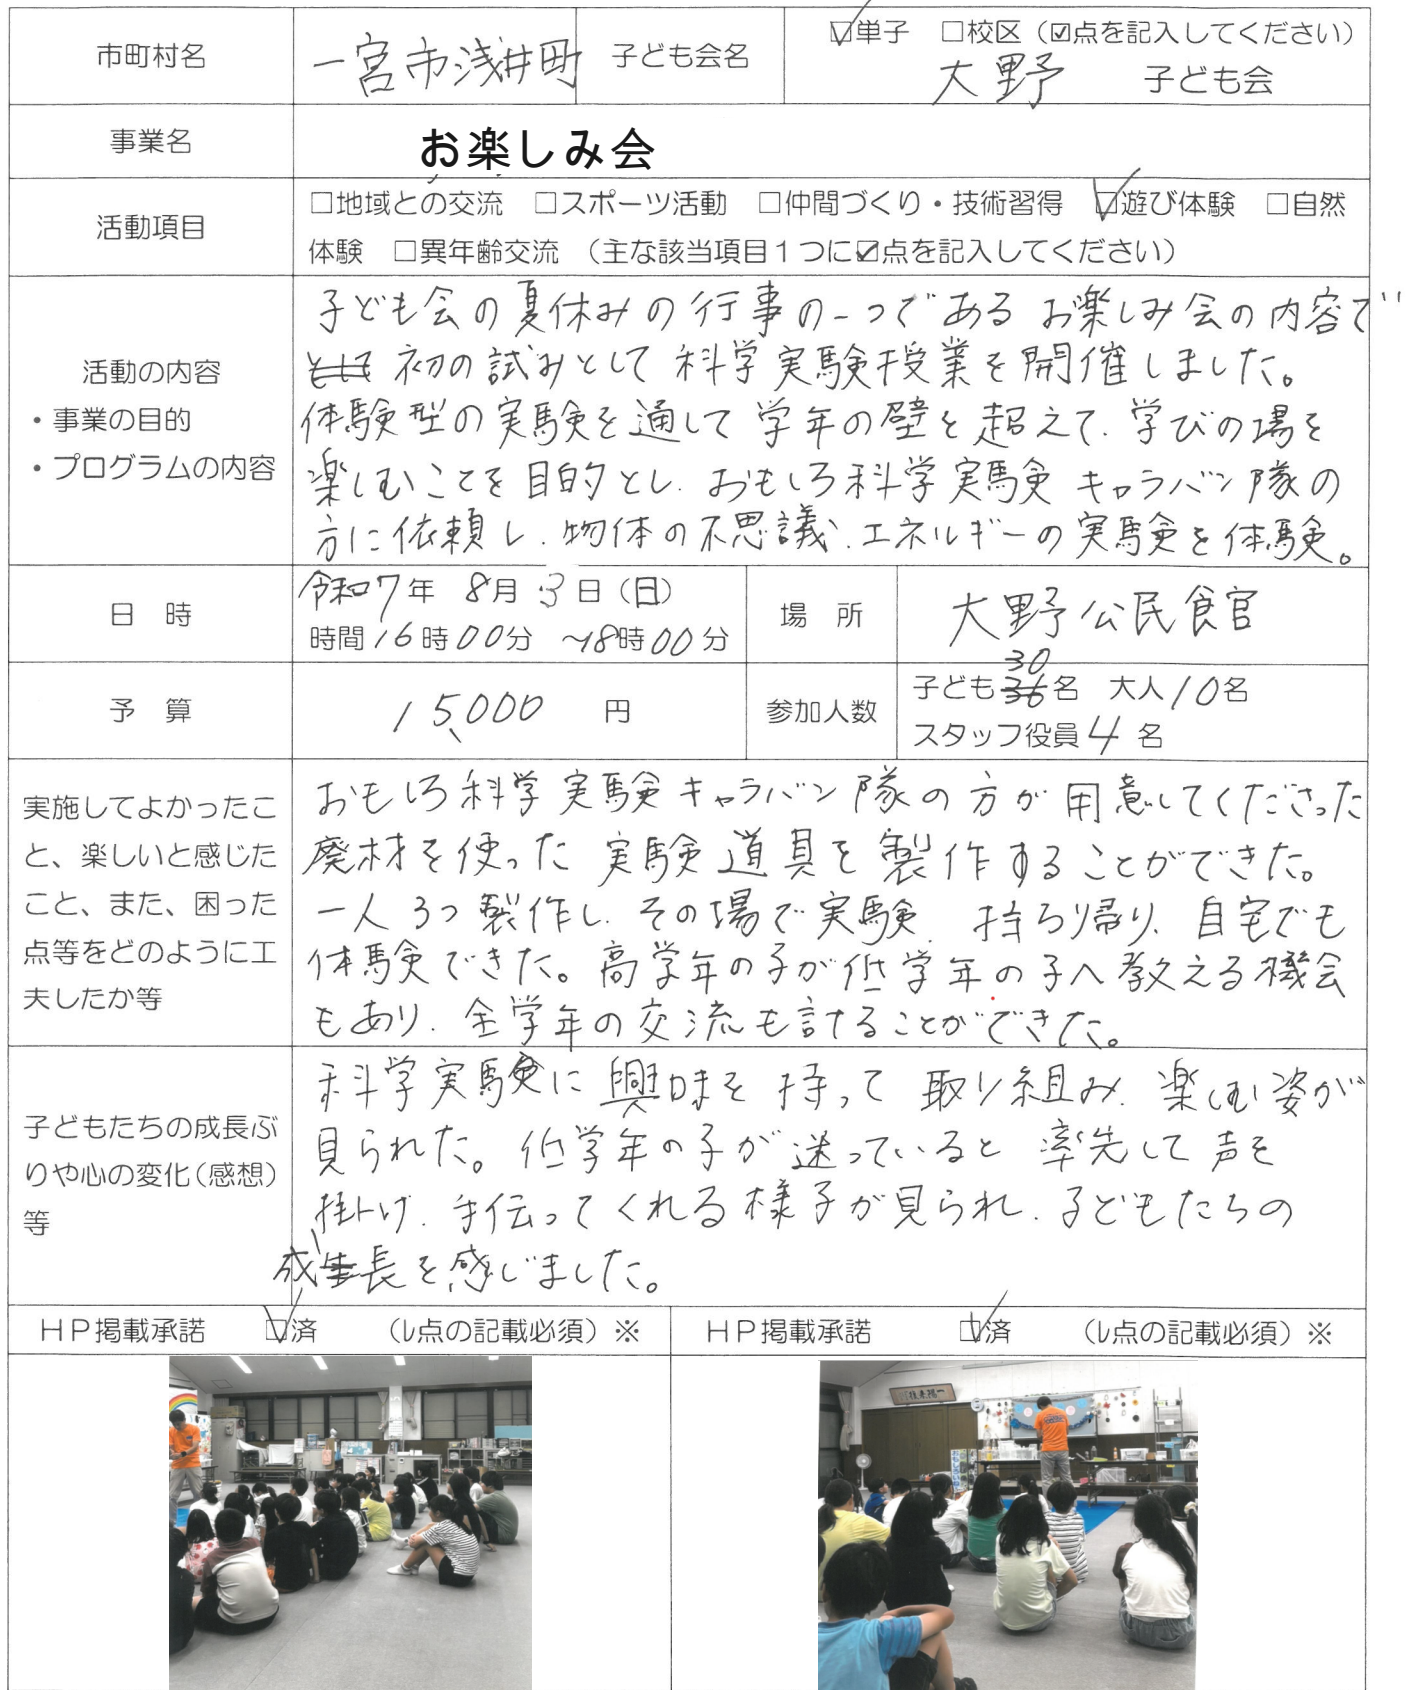 市町村名 一宮市浅井町 子ども会名 ☑単子 □校区（☑点を記入してください）
大野 子ども会
事業名 お楽しみ会
活動項目
□地域との交流 □スポーツ活動 □仲間づくり・技術習得 ☑遊び体験 □自然
体験 □異年齢交流 （主な該当項目１つに☑点を記入してください）
活動の内容
・事業の目的
・プログラムの内容
子ども会の夏休みの行事の一つである お楽しみ会の内容で
初の試みとして 科学実験授業を開催しました。
体験型の実験を通して 学年の壁を超えて、学びの場を
楽しむことを目的とし、おもしろ科学実験キャラバン隊の
方に依頼し、物体の不思議、エネルギーの実験を体験。
日 時
令和7年 8月 3日（日）
時間16時00分 ～18時00分
場 所 大野公民館
予 算 15,000 円
参加人数
30
子ども36名 大人10名
スタッフ役員4名
実施してよかったこ
と、楽しいと感じた
こと、また、困った
点等をどのように工
夫したか等
おもしろ科学実験キャラバン隊の方が用意してくださった
廃材を使った実験道具を製作することができた。
一人3つ製作し、その場で実験、持ち帰り、自宅でも
体験できた。高学年の子が低学年の子へ教える機会
もあり、全学年の交流も計ることができた。
子どもたちの成長ぶ
りや心の変化（感想）
等
科学実験に興味を持って取り組み、楽しむ姿が
見られた。低学年の子が迷っていると率先して声を
掛け、手伝ってくれる様子が見られ、子どもたちの
成長を感じました。
ＨＰ掲載承諾 ☑済 （レ点の記載必須）※ ＨＰ掲載承諾 ☑済 （レ点の記載必須）※